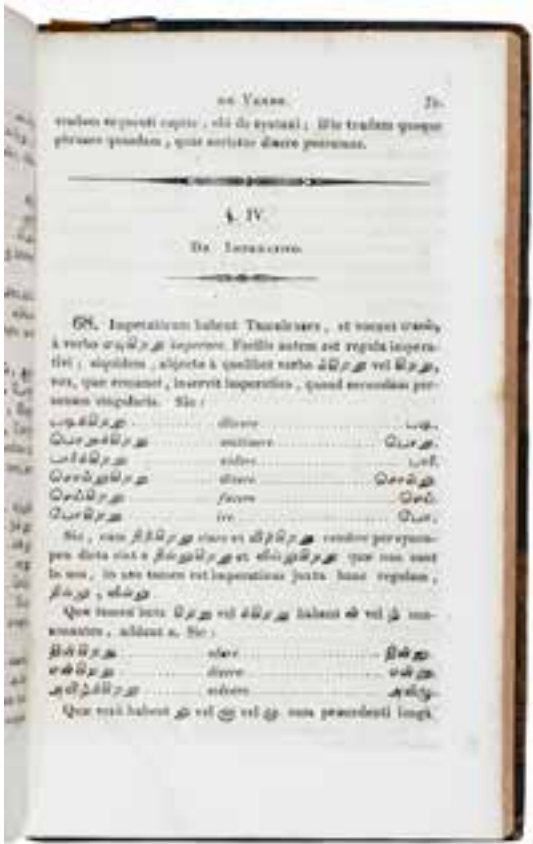 DE VERBO.
tradam sequenti capite, ubi de syntaxi; illic tradam quoque
phrases quasdam, quas scriptor dicere
§. IV.
DE IMPERATIVO.
68. Imperativum habent Tamulenses, et vocant
à verbo imperare. Facilis autem est regula impera-
tivi; siquidem, abjecta à quolibet verbo க்கிறது vel கிறது,
vox, quae remanet, inservit imperativo, quoad secundam per-
sonam singularis. Sic:
படிக்கிறது discere படி.
பொறுக்கிறது sustinere பொறு.
பார்க்கிறது videre பார்.
சொல்லுகிறது dicere சொல்லு.
செய்கிறது facere செய்.
போகிறது ire போ.
Sic, cum நிற்கிறது stare et விற்கிறது vendere per synco-
pen dicta sint à நில்லுகிறது et வில்லுகிறது quae non sunt
in usu, in usu tamen est imperativus juxta hanc regulam,
நில்லு, வில்லு.
Quae tamen ante கிறது vel க்கிறது habent ன் vel ழ் con-
sonantes, addunt u. Sic:
dicere என்னு.
Quae verò habent vel vel cum praecedenti longâ,